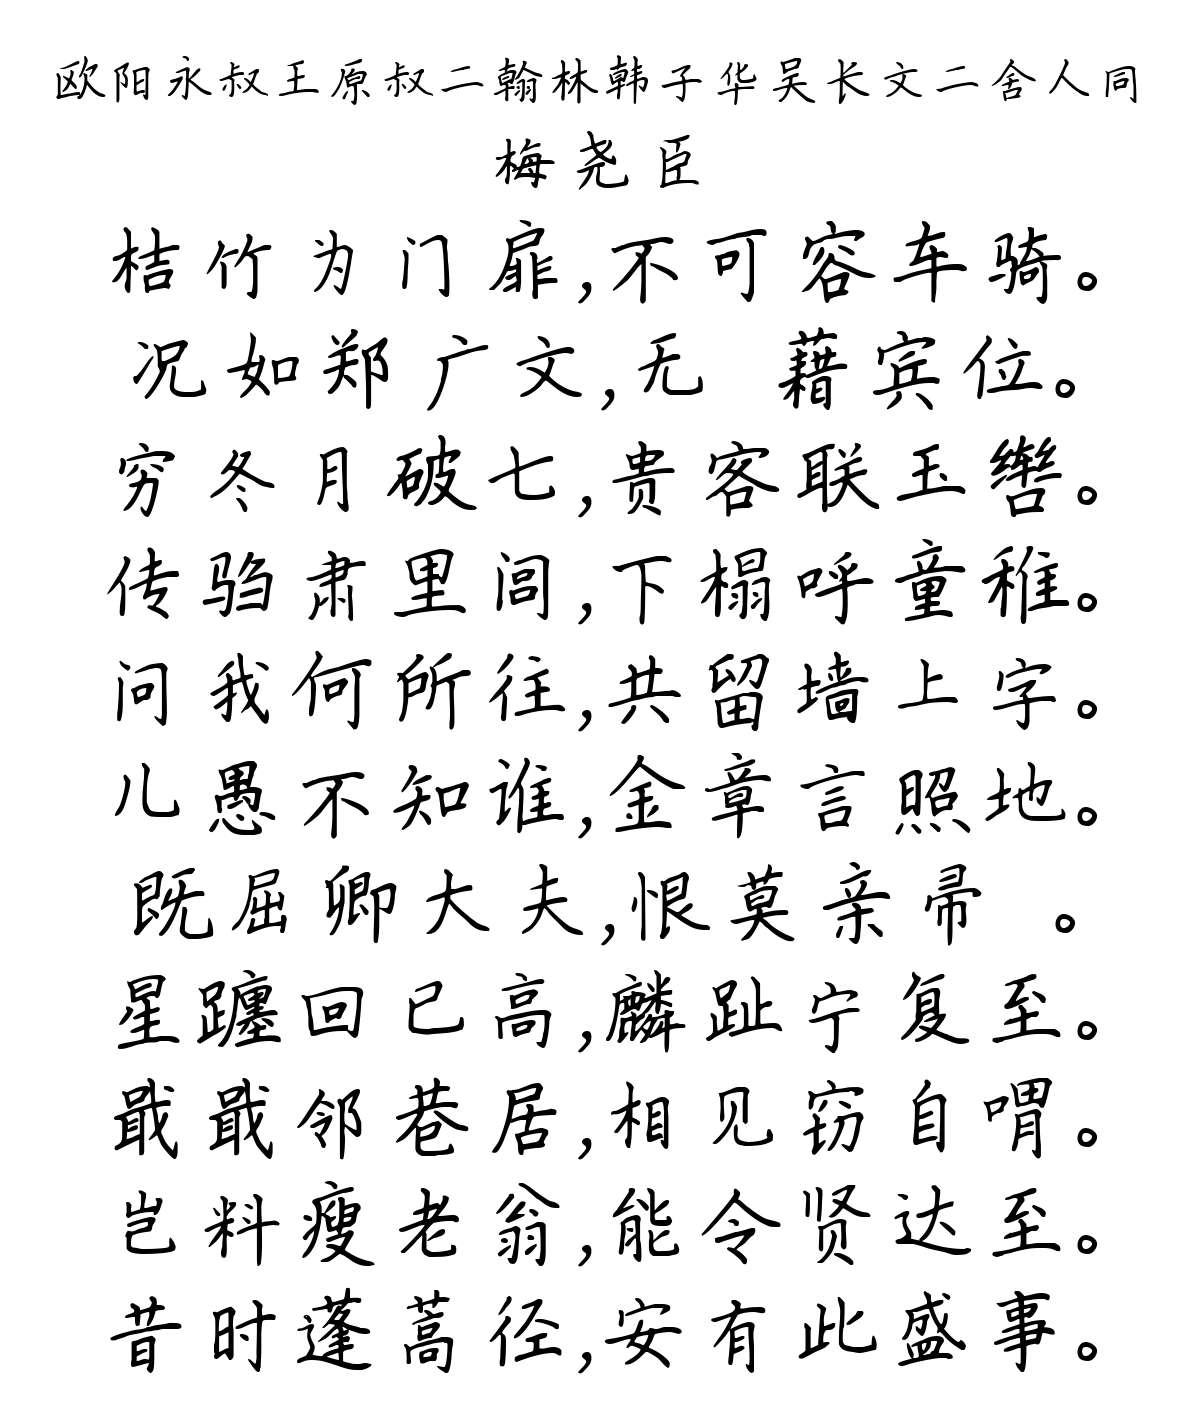 欧阳永叔王原叔二翰林韩子华吴长文二舍人同
梅尧臣
桔竹为门扉,不可容车骑。
况如郑广文,无 藉宾位。
穷冬月破七,贵客联玉辔。
传驺肃里闾,下榻呼童稚。
问我何所往,共留墙上字。
儿愚不知谁,金章言照地。
既屈卿大夫,恨莫亲帚 。
星躔回已高,麟趾宁复至。
戢戢邻巷居,相见窃自喟。
岂料瘦老翁,能令贤达至。
昔时蓬蒿径,安有此盛事。